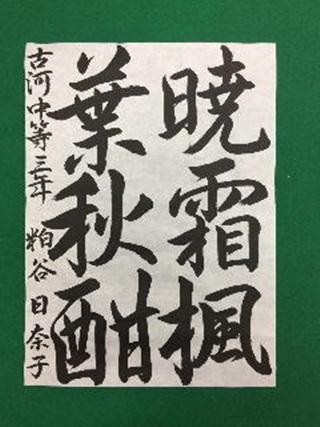 暁霜楓
葉秋酣
古河中等三年 粕谷日奈子